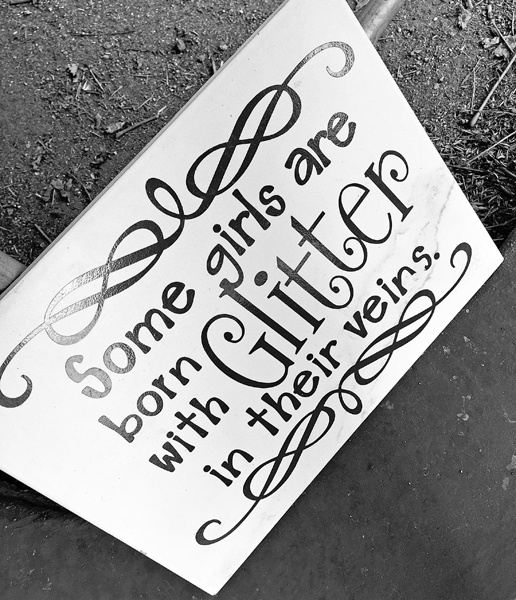 Some girls are
born
with Glitter
in their veins.